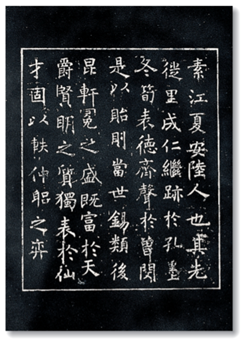 素江夏安陸人也其先
徙里成仁繼跡於孔墨
冬筍表德齊聲於曾閔
是以貽則當世錫類後
昆軒冕之盛既富於天
爵賢明之質獨表於仙
才固以軼仲之弈